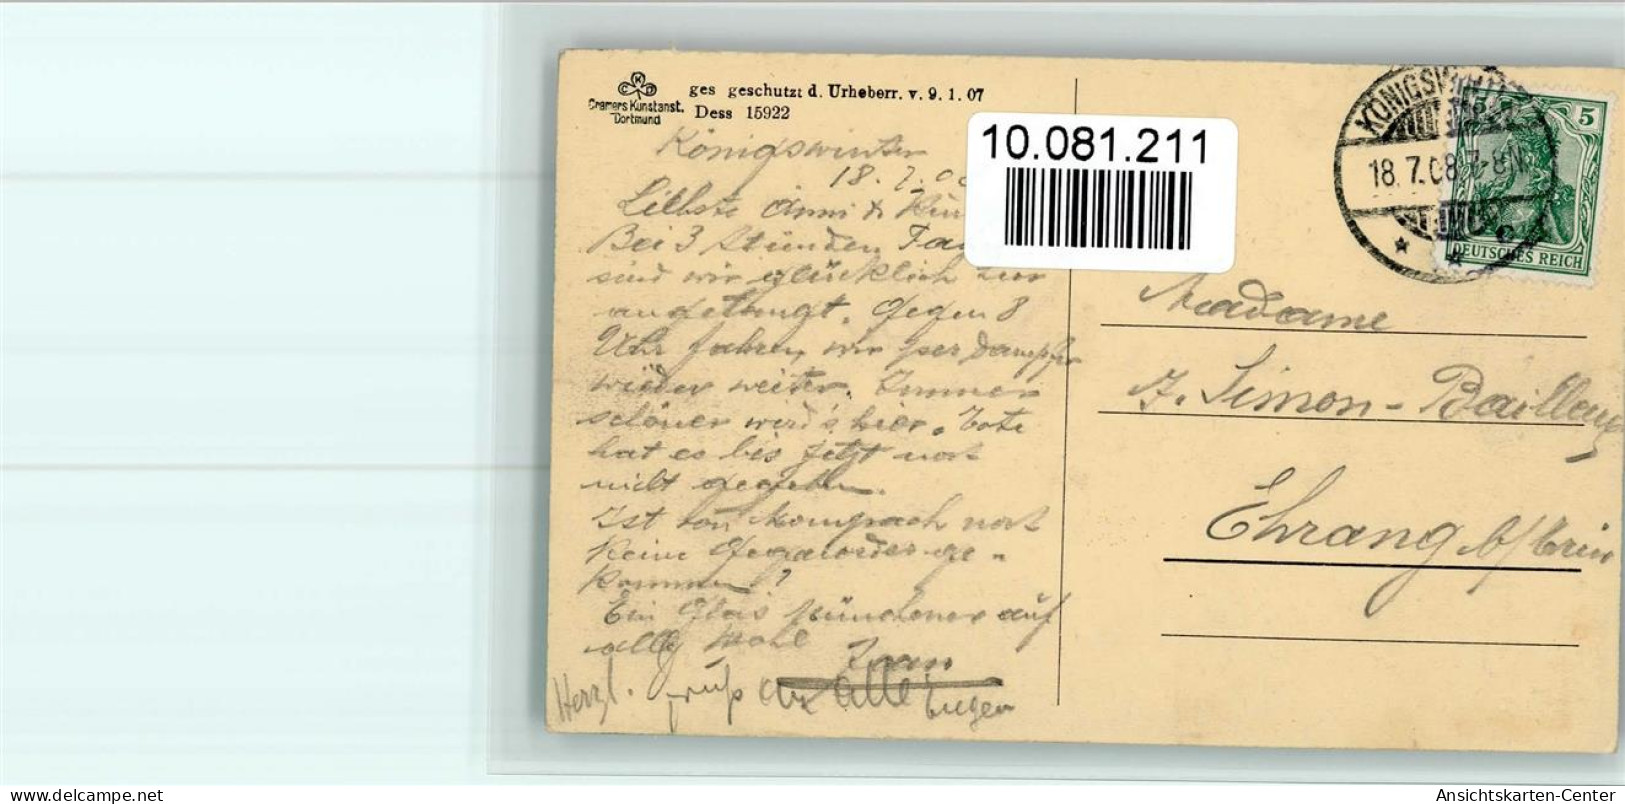 K
C D
Cramers Kunstanst.
Dortmund
ges geschutzt d. Urheberr. v. 9. 1. 07
Dess 15922
10.081.211
KÖNIGSWINTER
18.7.08.7-8N.
5
DEUTSCHES REICH
Königswinter
18. 7. 08
Liebste Anni &
Bei 3 Stünden
sind wir glücklich hier
angelangt. Gegen 8
Uhr fahren wir per Dampfer
wieder weiter. Immer
schöner wird's hier. Tote
hat es bis jetzt noch
nicht gegeben.
Ist von noch
keine Gegenorder ge-
kommen?
Ein Glas Münchener auf
aller Wohl
Herzl. Gruß an alle Eugen
Madame
J. Simon-Bailleux
Ehrang b/Trier
hakenberg.delcampe.net
Ansichtskarten-Center